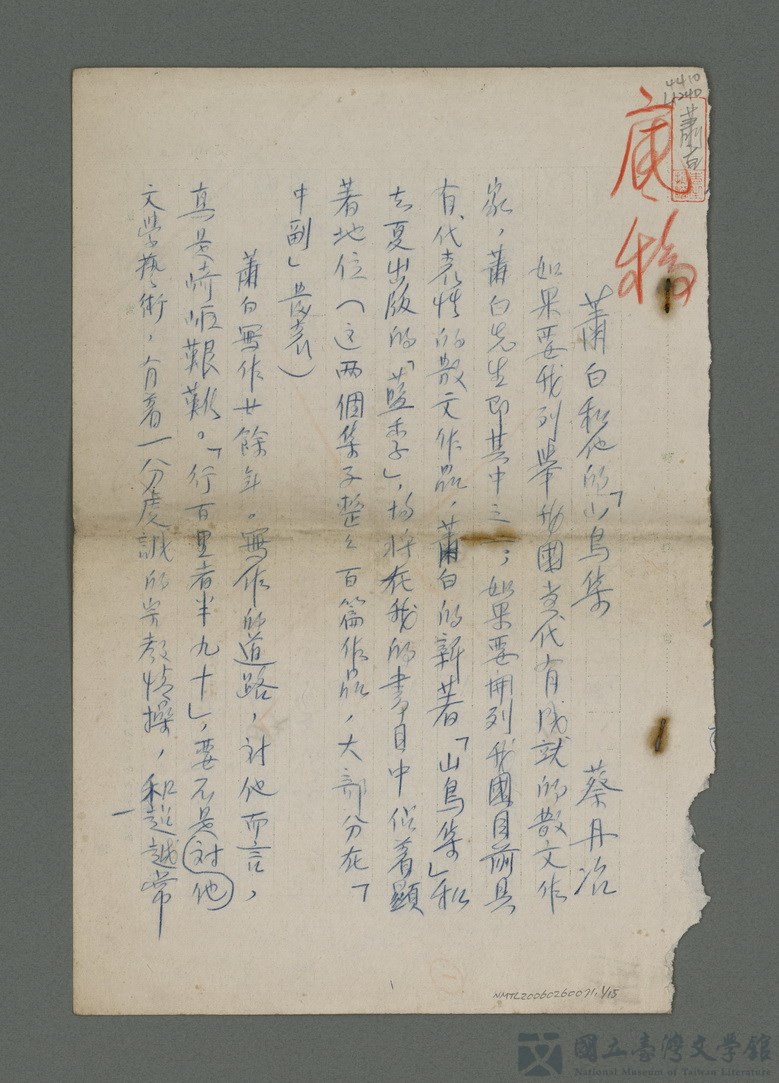 4410
蕭白
底稿
蕭白和他的「山鳥集
蔡丹冶
如果要我列舉我國當代有成就的散文作
家，蕭白先生即其中之一；如果要開列我國目前具
有代表性的散文作品，蕭白的新著「山鳥集」和
去夏出版的「藍季」，均將在我的書目中佔著顯
著地位（這兩個集子整整百篇作品，大部分在「
中副」發表）
蕭白寫作廿餘年。寫作的道路，對他而言，
真是崎嶇艱難。「行百里者半九十」，要不是對他
文學藝術，有著一分虔誠的宗教情操，和超越常
一
NMTL20060260071, 1/15
國立臺灣文學館
National Museum of Taiwan Literature